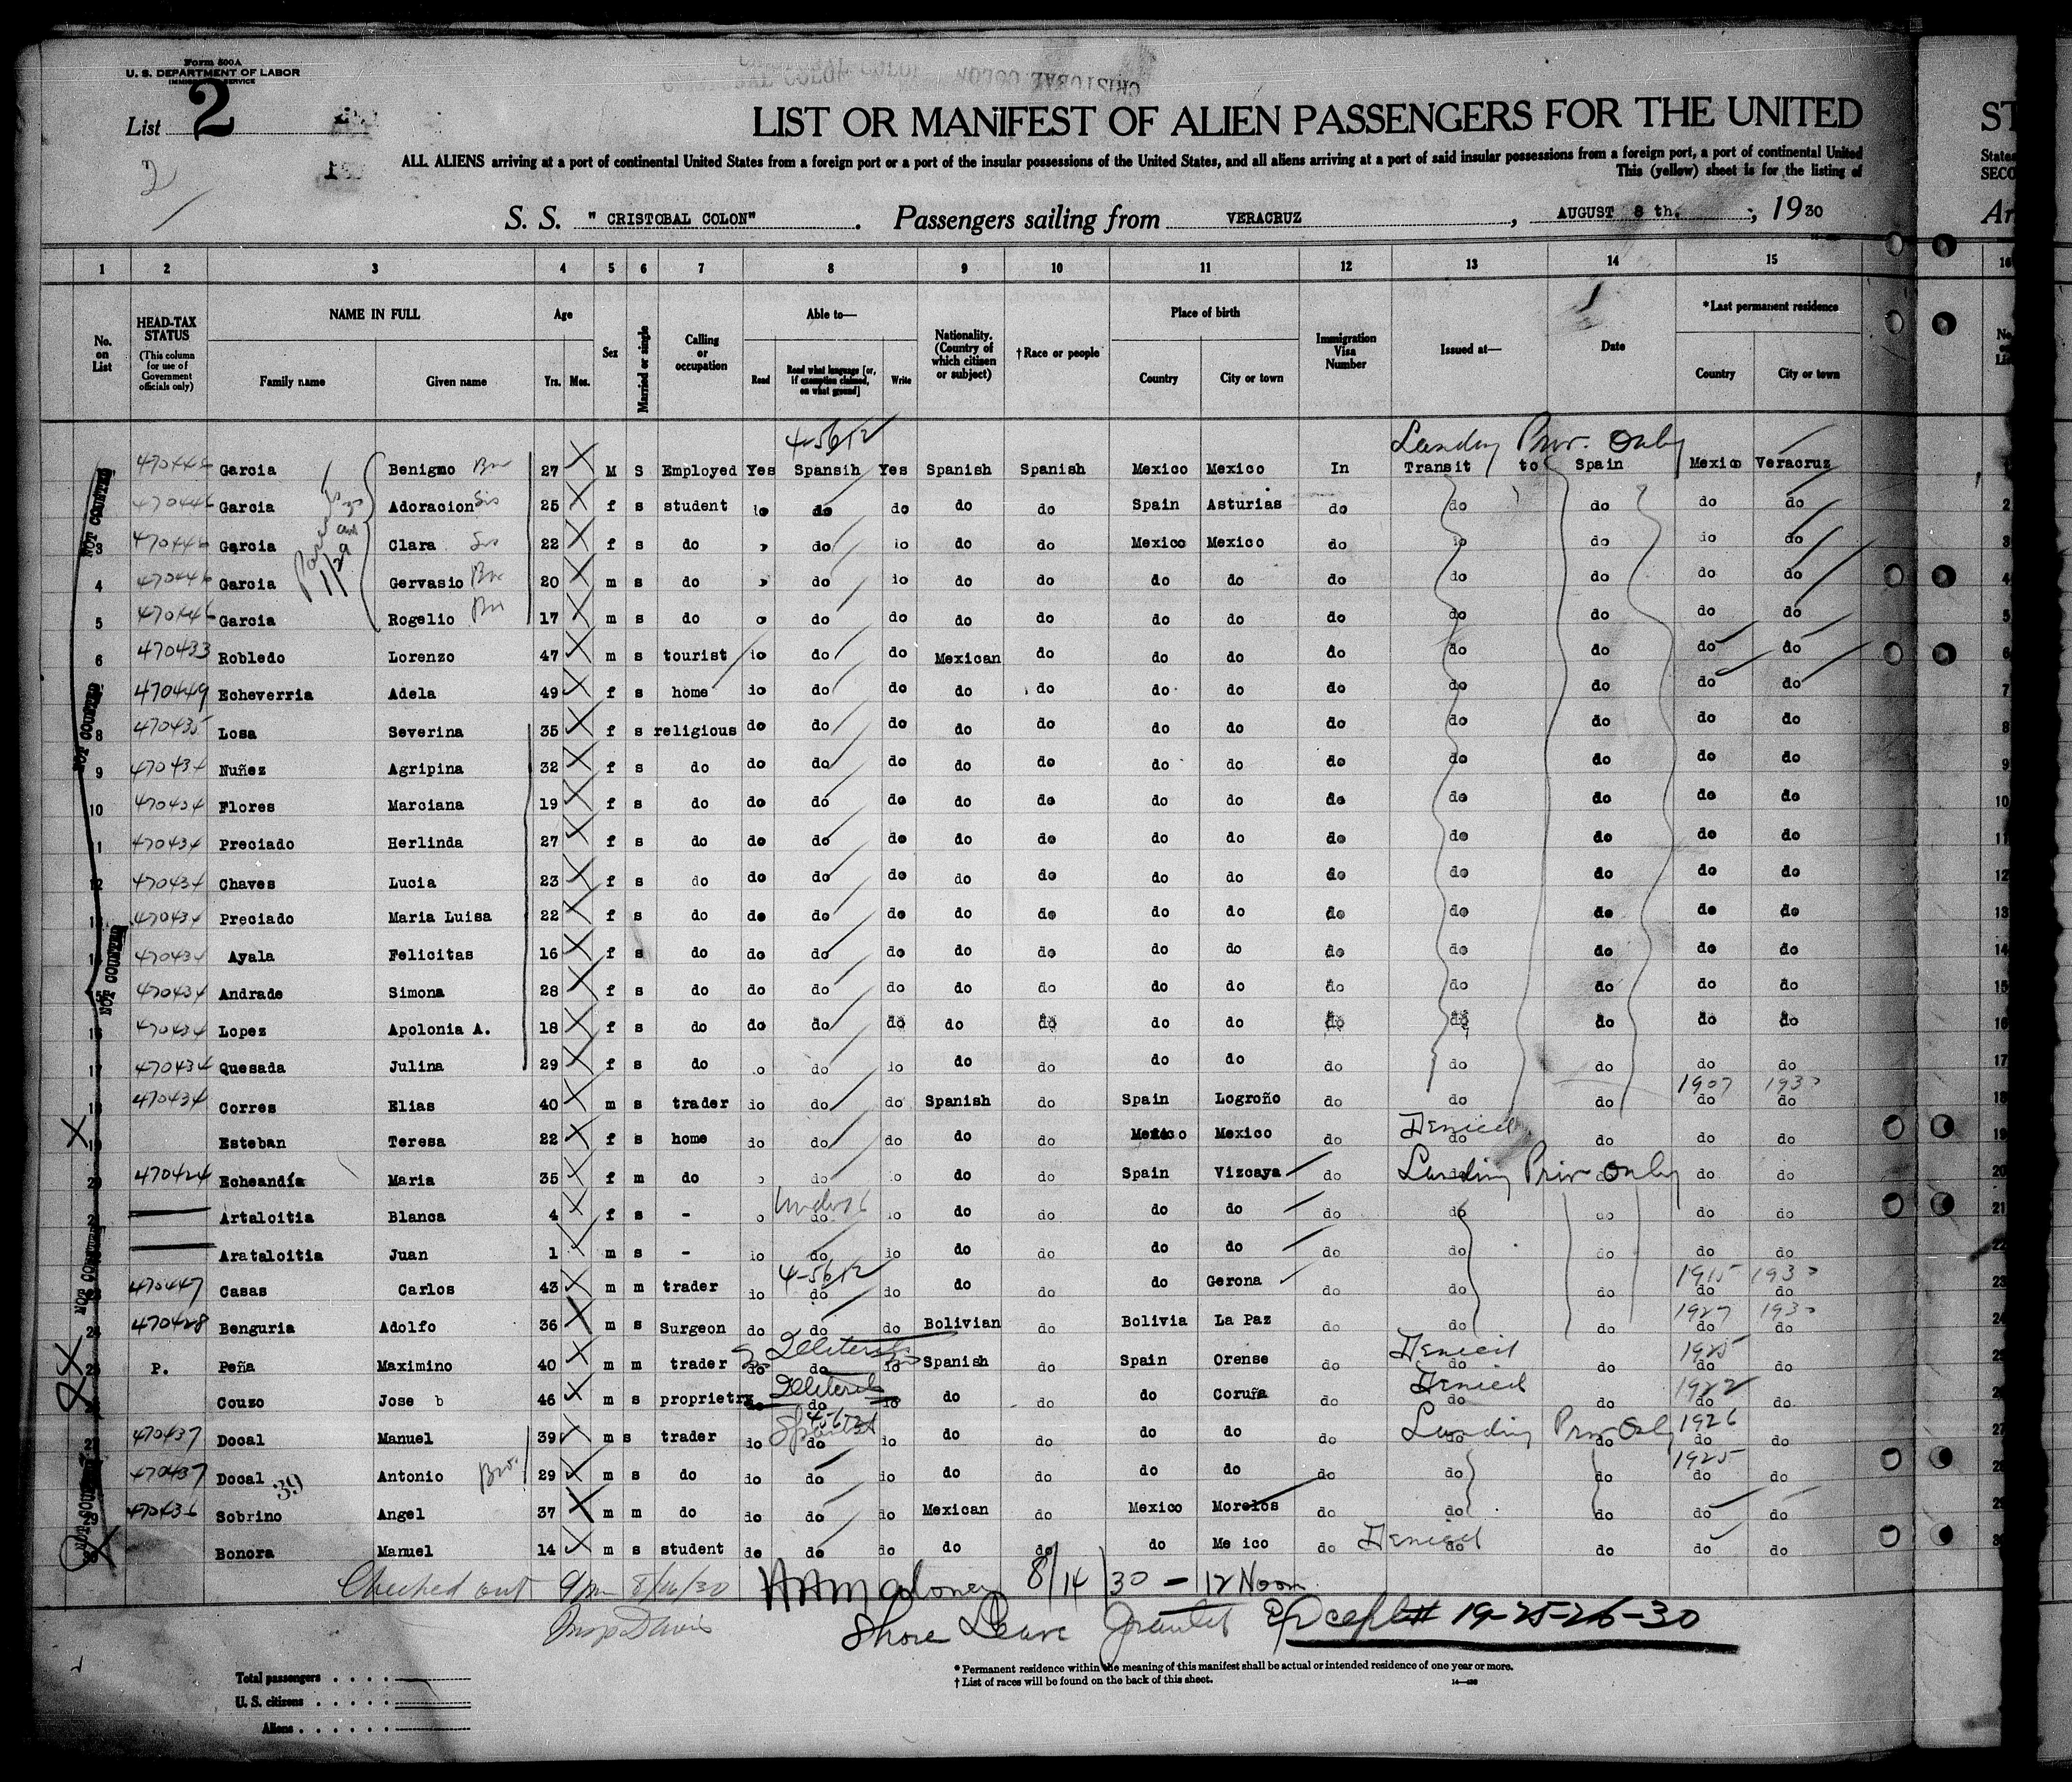 Form 500A
U. S. DEPARTMENT OF LABOR
IMMIGRATION SERVICE
CRISTOBAL COLON
List 2
2
LIST OR MANIFEST OF ALIEN PASSENGERS FOR THE UNITED
ST
ALL ALIENS arriving at a port of continental United States from a foreign port or a port of the insular possessions of the United States, and all aliens arriving at a port of said insular possessions from a foreign port, a port of continental United
States
This (yellow) sheet is for the listing of
SECO
S. S. " CRISTOBAL COLON" . Passengers sailing from VERACRUZ , AUGUST 8 th. , 1930
Ar
1 2 3 4 5 6 7 8 9 10 11 12 13 14 15 16
No. on List
HEAD-TAX STATUS (This column for use of Government officials only)
NAME IN FULL
Family name Given name
Age
Yrs. Mos.
Sex
Married or single
Calling or occupation
Able to—
Read Read what language [or, if exemption claimed, on what ground] Write
Nationality. (Country of which citizen or subject)
†Race or people
Place of birth
Country City or town
Immigration Visa Number
Issued at—
Date
*Last permanent residence
Country City or town
4-5612 Landing Priv. Only
470446 Garcia Benigno Bro 27 M S Employed Yes Spansih Yes Spanish Spanish Mexico Mexico In Transit to Spain Mexico Veracruz
470446 Garcia Adoracion Sis 25 f s student do do do do Spain Asturias do do do do do
3 470446 Garcia Clara Sis 22 f s do do do do Mexico Mexico do do do do
4 470446 Garcia Gervasio Bro 20 m s do do do do do do do do do do do
5 470446 Garcia Rogelio Bro 17 m s do do do do do do do do do do do do
6 470433 Robledo Lorenzo 47 m s tourist do do Mexican do do do do do do do do
7 470449 Echeverria Adela 49 f s home do do do do do do do do do do do do
8 470435 Losa Severina 35 f s religious do do do do do do do do do do do do
9 470434 Nuñez Agripina 32 f s do do do do do do do do do do do do do
10 470434 Flores Marciana 19 f s do do do do do do do do do do do do do
11 470434 Preciado Herlinda 27 f s do do do do do do do do do do do do do
12 470434 Chaves Lucia 23 f s do do do do do do do do do do do do do
13 470434 Preciado Maria Luisa 22 f s do do do do do do do do do do do do do
14 470434 Ayala Felicitas 16 f s do do do do do do do do do do do do do
15 470434 Andrade Simona 28 f s do do do do do do do do do do do do do
16 470434 Lopez Apolonia A. 18 f s do do do do do do do do do do do do do
17 470434 Quesada Julina 29 f s do do do do do do do do do do do
1907 1930
18 470434 Corres Elias 40 m s trader do do Spanish do Spain Logroño do do do do do
19 Esteban Teresa 22 f s home do do do do do Mexico Mexico do Denied do do do do
20 470424 Echeandía Maria 35 f m do do do do Spain Vizcaya do Landing Priv Only do do
Under 16
21 Artaloitia Blanca 4 f s - do do do do do do do do do do
22 Arataloitia Juan 1 m s - do do do do do do do do do do
4-5612 1915 1930
23 470447 Casas Carlos 43 m m trader do do do do do Gerona do do do do do
1927 1930
24 470428 Benguria Adolfo 36 m s Surgeon do do do Bolivian do Bolivia La Paz do do do do do
Illiterate Denied 1925
25 P. Peña Maximino 40 m m trader do do do Spanish do Spain Orense do do do do do
Illiterate Denied 1922
Couzo Jose b 46 m s proprietry do do do do do Coruña do do do do do
Landing Priv Only 1926
27 470437 Docal Manuel 39 m s trader do do do do do do do do do do do do
1925
28 470437 Docal Antonio Bro. 29 m s do do do do do do do do do do do do do
39
29 470436 Sobrino Angel 37 m m do do do do Mexican do Mexico Morelos do do do do do
30 Bonora Manuel 14 m s student do do do do do do Me ico do Denied do do do do
NOT COUNTED
NOT COUNTED
NOT COUNTED
NOT COUNTED
NOT COUNTED
Checked out 9 pm 8/16/30 8/14/30 — 12 Noon
Davis
Shore Leave Granted Except # 19-25-26-30
* Permanent residence within the meaning of this manifest shall be actual or intended residence of one year or more.
† List of races will be found on the back of this sheet.
Total passengers
U. S. citizens
Aliens